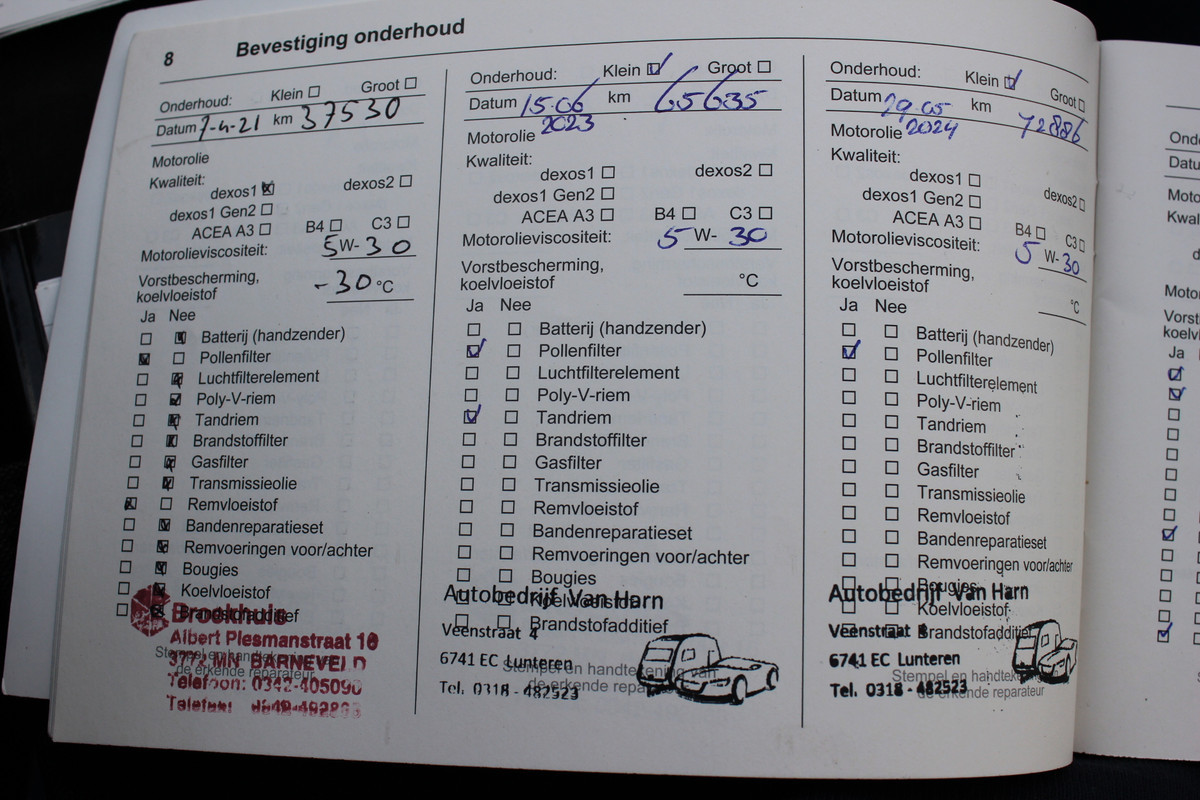 8 Bevestiging onderhoud
Onderhoud: Klein Groot
Datum 7-4-21 km 37530
Motorolie
Kwaliteit:
dexos1 dexos2
dexos1 Gen2
ACEA A3 B4 C3
Motorolieviscositeit: 5W-30
Vorstbescherming,
koelvloeistof -30 °C
Ja Nee
Batterij (handzender)
Pollenfilter
Luchtfilterelement
Poly-V-riem
Tandriem
Brandstoffilter
Gasfilter
Transmissieolie
Remvloeistof
Bandenreparatieset
Remvoeringen voor/achter
Bougies
Koelvloeistof
Brandstofadditief
Broekhuis
Albert Plesmanstraat 10
3772 MN BARNEVELD
Stempel en handtekening
de erkende reparateur
Telefoon: 0342-405090
Onderhoud: Klein Groot
Datum 15-06 km 65635
2023
Motorolie
Kwaliteit:
dexos1 dexos2
dexos1 Gen2
ACEA A3 B4 C3
Motorolieviscositeit: 5 W- 30
Vorstbescherming,
koelvloeistof °C
Ja Nee
Batterij (handzender)
Pollenfilter
Luchtfilterelement
Poly-V-riem
Tandriem
Brandstoffilter
Gasfilter
Transmissieolie
Remvloeistof
Bandenreparatieset
Remvoeringen voor/achter
Bougies
Koelvloeistof
Brandstofadditief
Autobedrijf Van Harn
Veenstraat 4
6741 EC Lunteren
Tel. 0318 - 482523
Stempel en handtekening van
de erkende reparateur
Onderhoud: Klein Groot
Datum 29-05 km 72886
2024
Motorolie
Kwaliteit:
dexos1 dexos2
dexos1 Gen2
ACEA A3 B4 C3
Motorolieviscositeit: 5 W-30
Vorstbescherming,
koelvloeistof °C
Ja Nee
Batterij (handzender)
Pollenfilter
Luchtfilterelement
Poly-V-riem
Tandriem
Brandstoffilter
Gasfilter
Transmissieolie
Remvloeistof
Bandenreparatieset
Remvoeringen voor/achter
Bougies
Koelvloeistof
Brandstofadditief
Autobedrijf Van Harn
Veenstraat
6741 EC Lunteren
Tel. 0318 - 482523
Stempel en handteken
de erkende reparateur
Ond
Datu
Mot
Kwal
d
Motor
Vorst
koelv
Ja